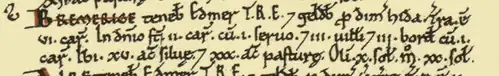 BREMERIGE teneb Edmer T.R.E. ⁊ geldb p dim hida. Tra. ē
vi. car. In dnio ſt ii. car. cū. i. ſeruo. ⁊ iii. uilli ⁊ iii. bord cū. i.
car. Ibi. xv. ac ſilue. ⁊ xxx. ac paſturę. Oli. x. ſol. m̊. xx. ſol.
Edmer T.R.E.